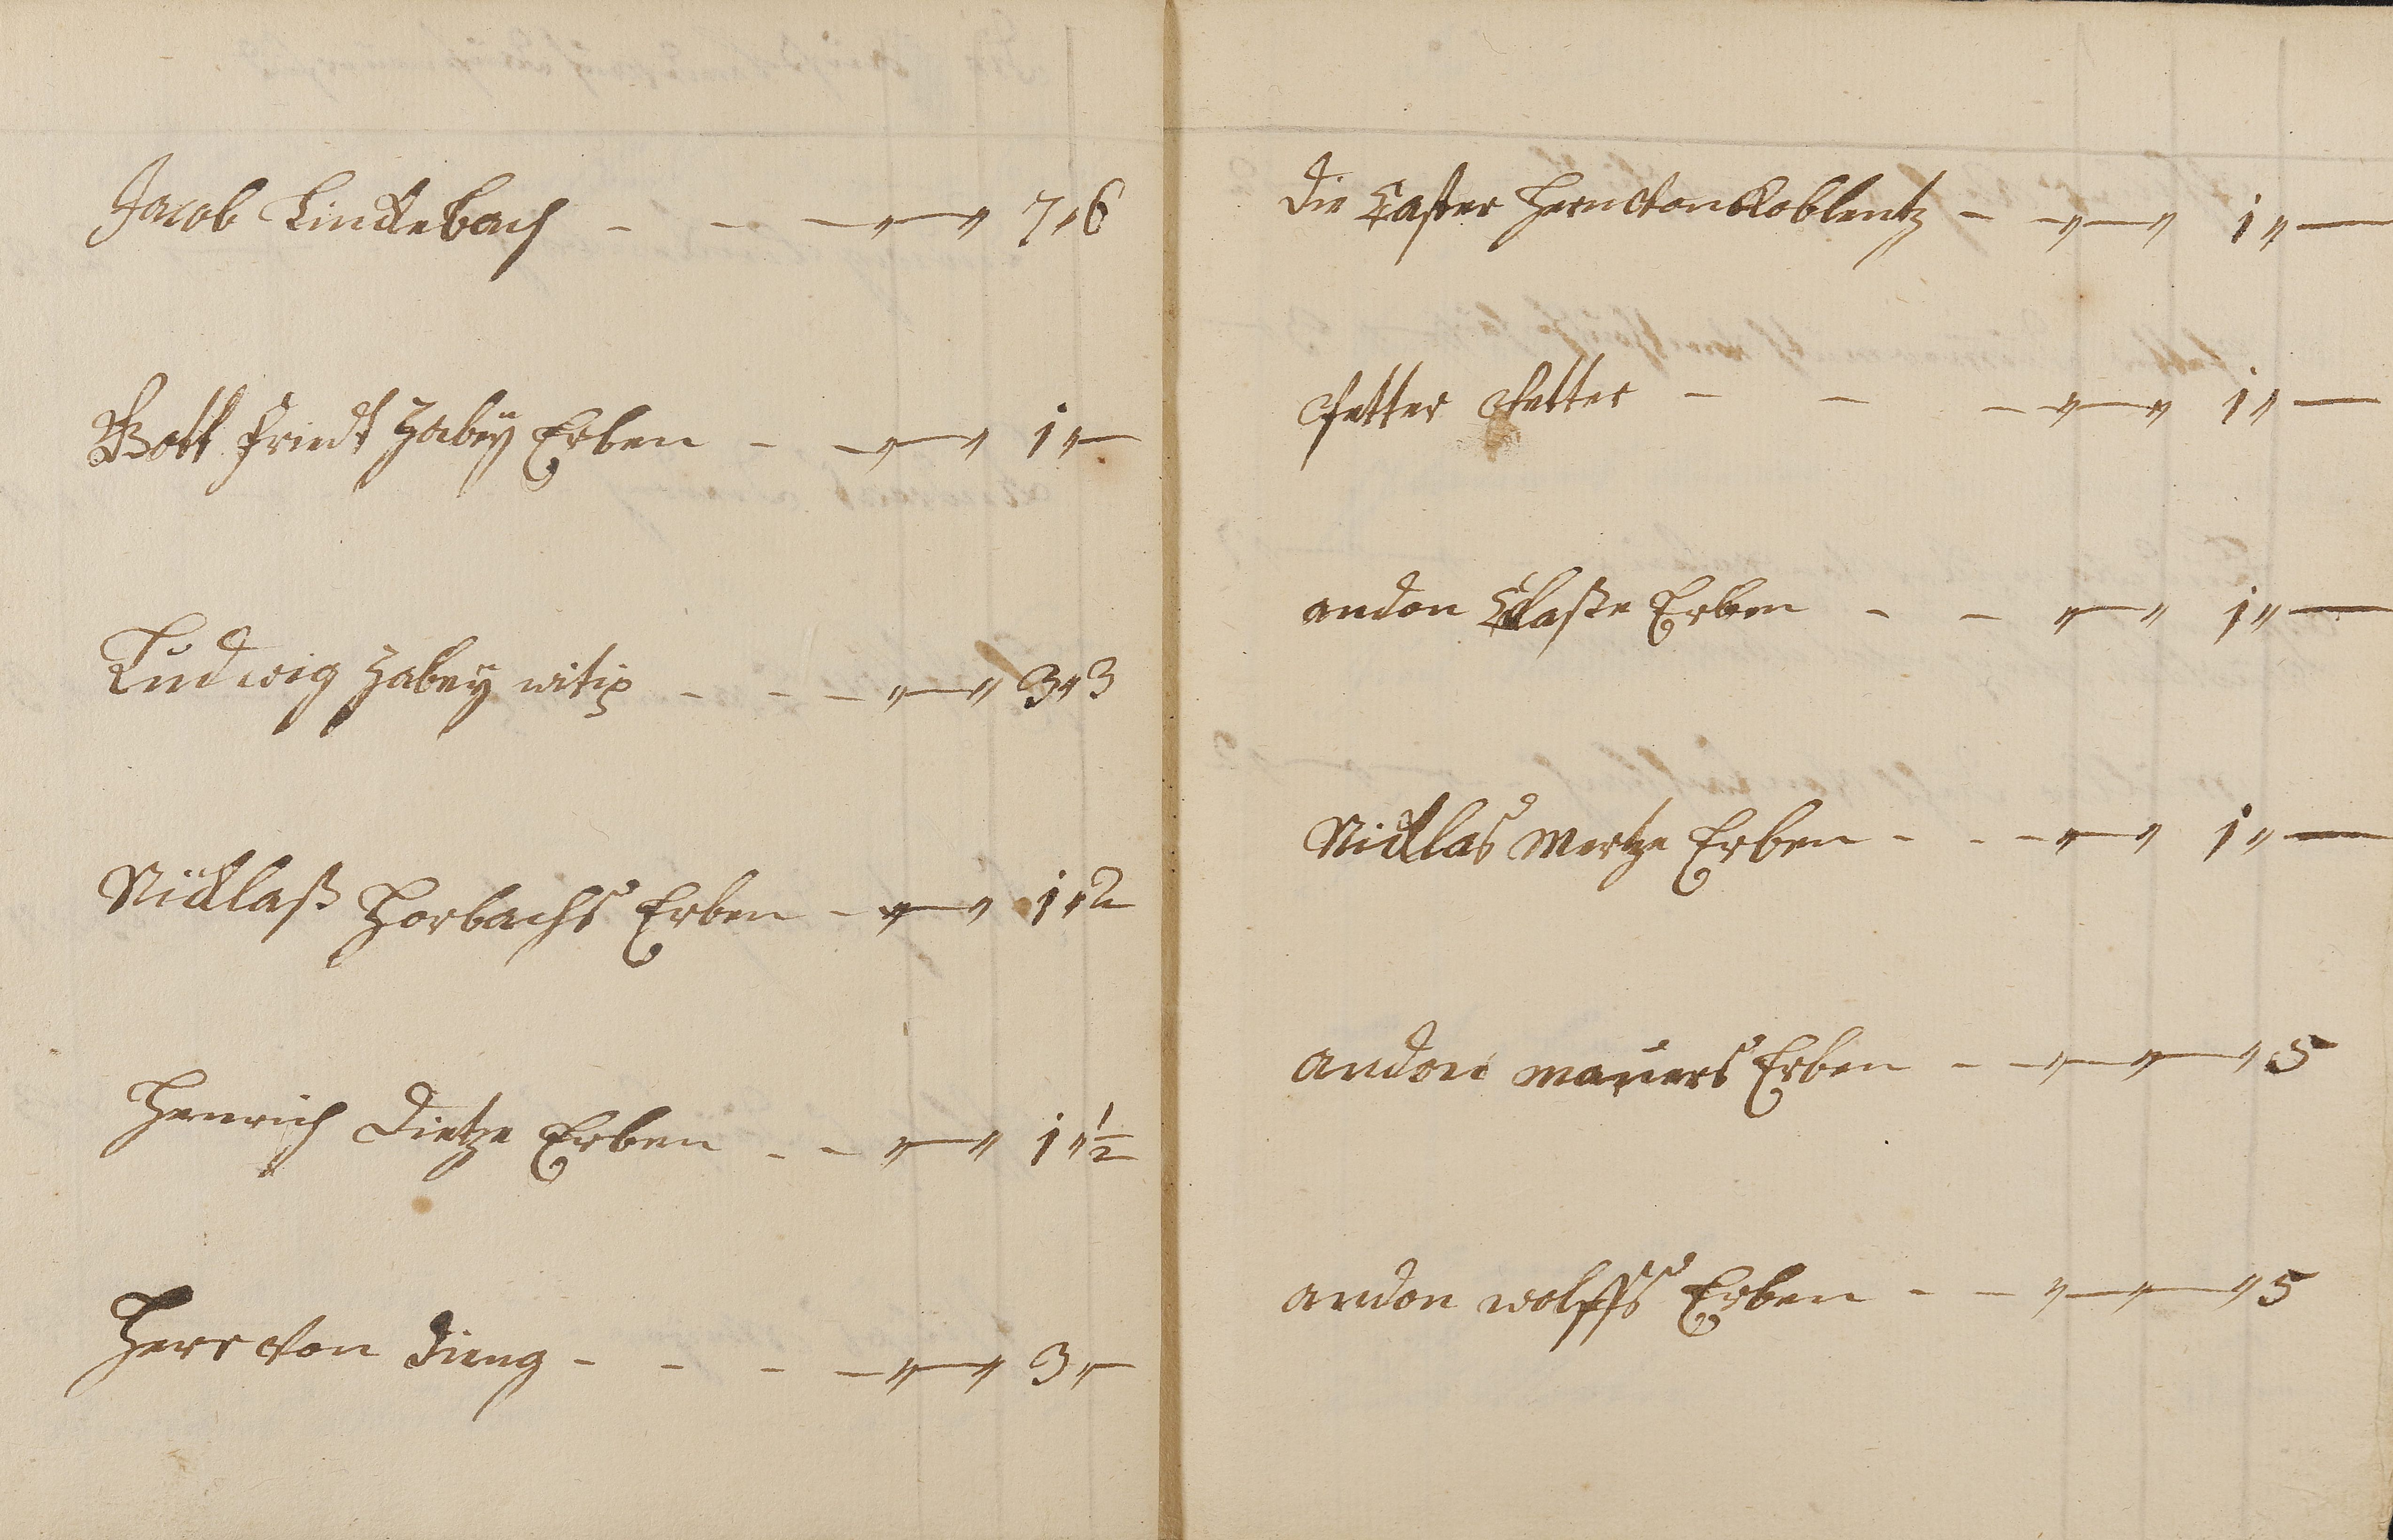 Jacob Lindebach - - - " — " 7 " 6
Gott friedt Zabeÿ Erben - - " — " 1 " —
Ludwig Zabeÿ witib - - - " — " 3 " 3
Nicklaß Horbachs Erben - " — " 1 " 2
Henrich Dietze Erben - - " — " 1 " ½
Herr Von Dieng - - - - " — " 3 " —
die Herrn Von Koblentz - - " — " 1 " —
- - - " — " 1 " —
andon Claße Erben - - " — " 1 " —
Nicklas Mertze Erben - - - " — " 1 " —
andon maüers Erben - - " — " — " 5
andon wolffs Erben - - " — " — " 5